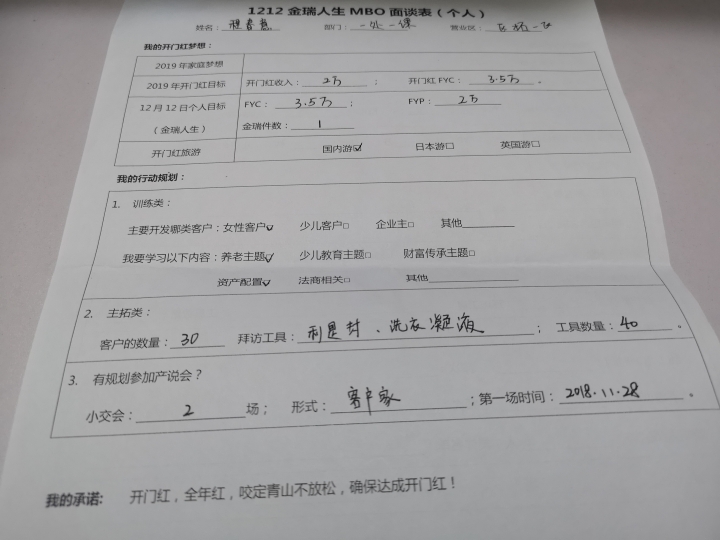 1212 金瑞人生 MBO 面谈表（个人）
姓名： 部门：一处一课 营业区：
我的开门红梦想：
2019 年家庭梦想
2019 年开门红目标 开门红收入：2万； 开门红 FYC：3.5万。
12 月 12 日个人目标 FYC：3.5万； FYP：2万
（金瑞人生） 金瑞件数：1
开门红旅游 国内游☑ 日本游□ 英国游□
我的行动规划：
1. 训练类：
主要开发哪类客户：女性客户☑ 少儿客户□ 企业主□ 其他
我要学习以下内容：养老主题☑ 少儿教育主题□ 财富传承主题□
资产配置☑ 法商相关□ 其他
2. 主拓类：
客户的数量：30 拜访工具：利是封、洗衣凝液； 工具数量：40。
3. 有规划参加产说会？
小交会：2场； 形式：客户家；第一场时间：2018.11.28。
我的承诺: 开门红，全年红，咬定青山不放松，确保达成开门红！